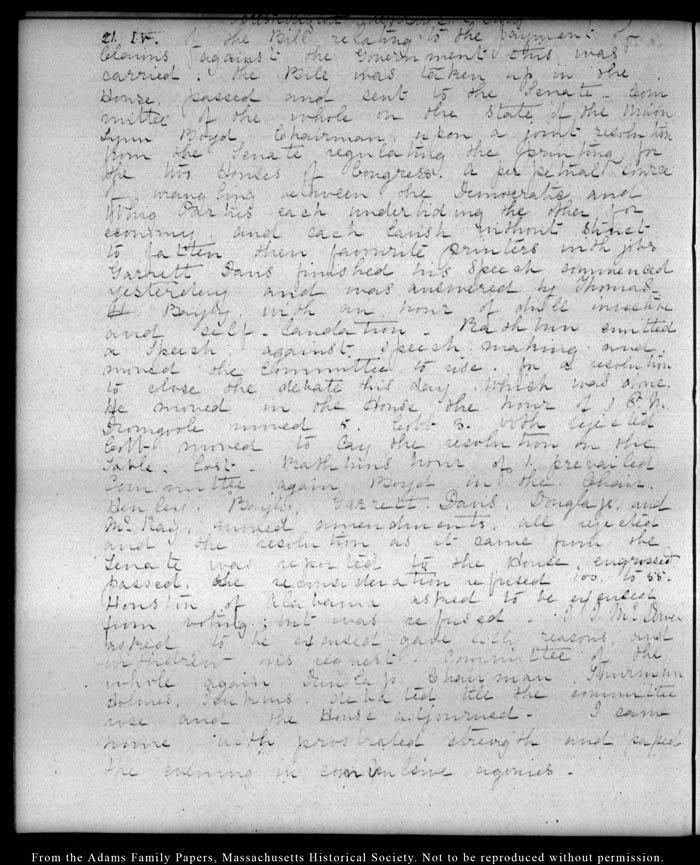 21. IV. of the Bill relating to the payment of
Claims against the Government this was
carried: the Bill was taken up in the
House, passed and sent to the Senate – Com
mittee of the whole on the State of the Union
Lynn Boyd Chairman, upon a joint resolution
from the Senate regulating the printing for
the two Houses of Congress. a perpetual
of wrangling between the Democratic and
Whig Parties each underbidding the other for
economy, and each lavish without stint
to fatten their favourite printers with jobs
Garrett Davis finished his Speech commenced
yesterday and was answered by Thomas
H Bayly, with an hour of dull invective
and self-laudation – Rathbun emitted
a Speech against speech making and
moved the Committee to rise. for a resolution
to close the debate this day. which was done.
He moved in the House the hour of 1 P.M.
Dromgoole moved 5. Cobb 3. both rejected
Cobb moved to lay the resolution on the
Table. Lost – Rathbun's hour of 1. prevailed
Committee again Boyd in the Chair.
Henley, Bayly, Garrett Davis, Douglass, and
McKay, moved amendments, all rejected
and the resolution as it came from the
Senate was reported to the House, engrossed
passed, the reconsideration refused 100. to 55.
Houston of Alabama asked to be excused
from voting; but was refused. J. J. McDowell
asked to be excused gave silly reasons, and
withdrew his request. Committee of the
whole again Dunlap Chairman Thurman
Holmes, Jenkins. debated till the committee
rose and the House adjourned – I came
home with prostrated strength and
the evening in convulsive agonies –
From the Adams Family Papers, Massachusetts Historical Society. Not to be reproduced without permission.